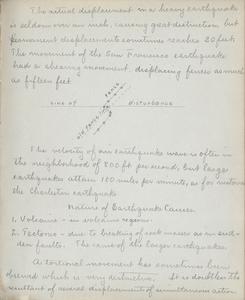 The actual displacement in a heavy earthquake
is seldom over an inch, causing great destruction, but
permanent displacements sometimes reaches 20 feet.
The movement of the San Francisco earthquake
had a shearing movement, displacing fences as much
as fifteen feet.
Line of Disturbance
Old Fence Line Fence
The velocity of an earthquake wave is often in
the neighborhood of 800 ft per second, but larger
earthquakes attain 180 miles per minute, as for instance
the Charleston earthquake
Nature of Earthquake Causes
1. Volcanic - in volcanic regions.
2. Tectonic - due to breaking of rock masses or in sud-
den faults. The cause of the larger earthquakes.
A tortional movement has sometimes been
observed which is very destructive. It is doubtless the
resultant of several displacements of simultaneous action